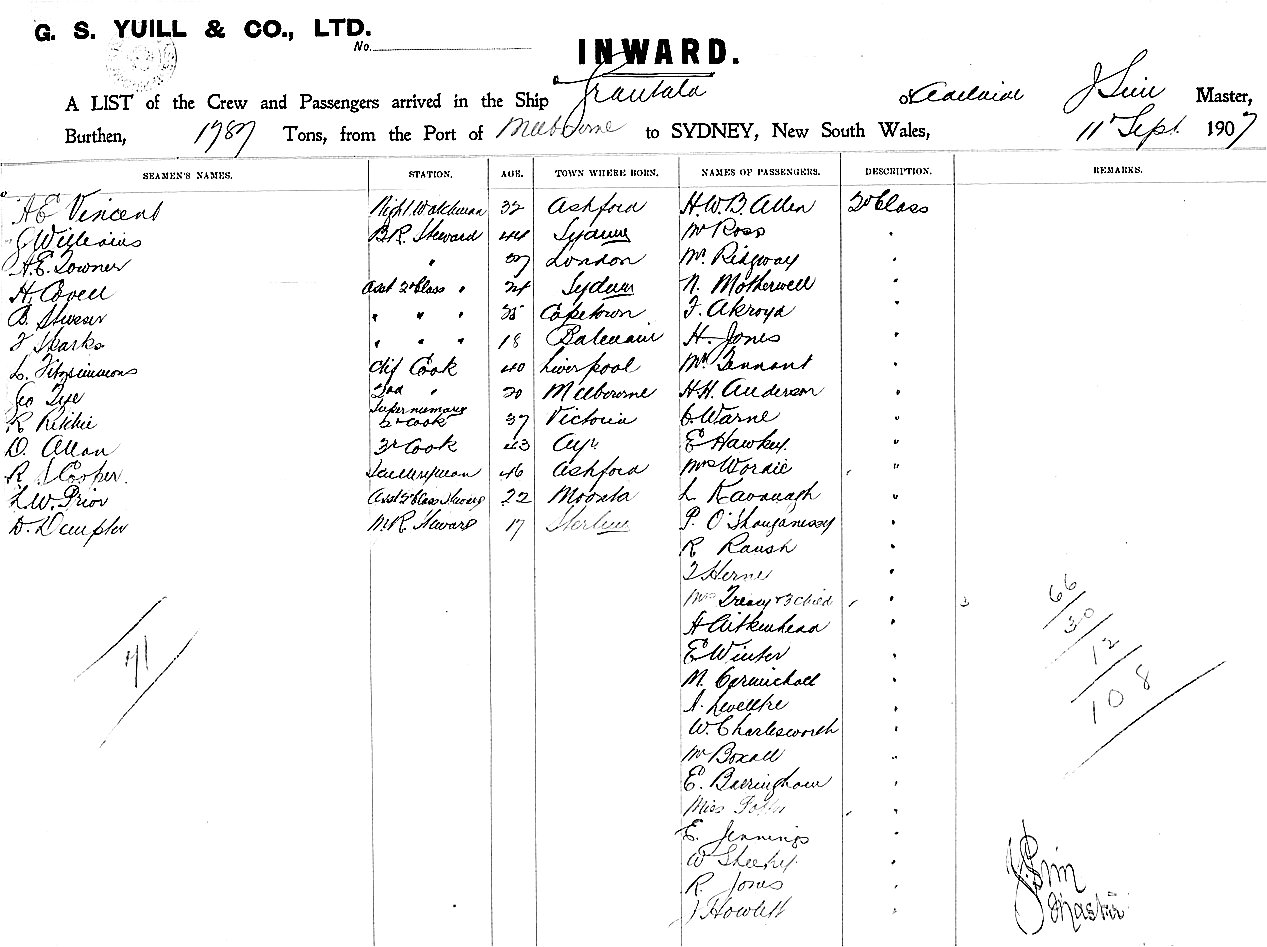 G. S. YUILL & CO., LTD.
No.
INWARD.
A LIST of the Crew and Passengers arrived in the Ship Grantala of Adelaide J Sim Master,
Burthen, Tons, from the Port of Melbourne to SYDNEY, New South Wales, 11 Sept. 1907
SEAMEN'S NAMES. STATION. AGE. TOWN WHERE BORN. NAMES OF PASSENGERS. DESCRIPTION. REMARKS.
A E Vincent Night Watchman 32 Ashford H.W.B. Allen 2d Class
J Williams B.R. Steward 44 Sydney Mr Ross "
A.E. Towner " London Mr. Ridgway "
H. Covell Asst 2d Class " 24 Sydney N. Motherwell "
B. " " " 35 Capetown F. Akroyd "
F Sharks " " " 18 Balmain H. Jones "
L. Fitzsimmons Chf Cook 40 Liverpool Mr Tennant "
Geo Tye 2nd " 20 Melbourne H.H. Anderson "
R Ritchie Supernumary 2d Cook 37 Victoria Warne "
D. Allan 3d Cook 43 Ayr E Hawkey. "
R Cooper. Sculleryman 46 Ashford Mrs Wordie "
L.W. Prior Asst 2d Class Steward 22 Moonta L Kavanagh "
D. Dempster M.R. Steward 17 P. O'Shauganessy "
R Raush "
J Herne "
Mrs Treacy & 3 child " 3
A Aitkenhead "
E Winter "
M. Carmichall "
"
W. Charlesworth "
Mr Boxall "
E. Barringham "
Miss "
E. Jennings "
W Sheehy. "
R. Jones "
J Howlett "
41
66
30
12
108
J. Sim
Master